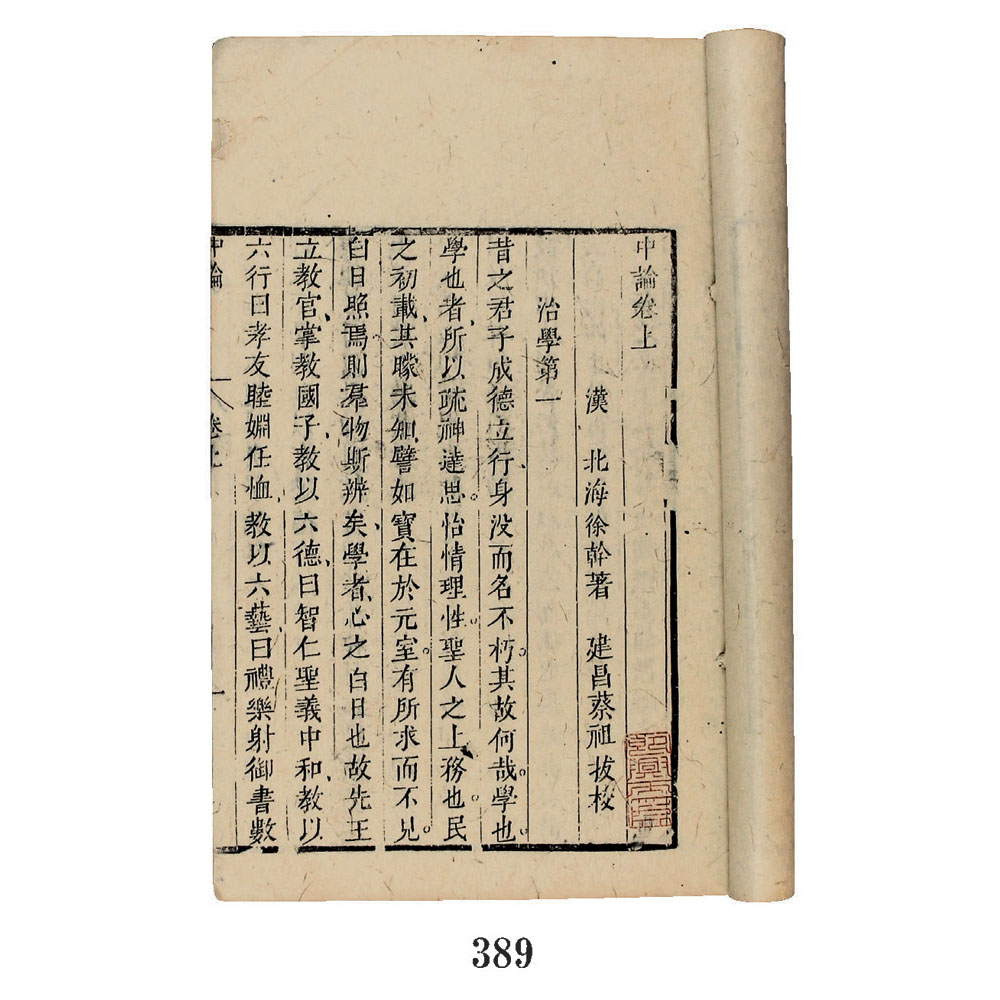 中論卷上
漢 北海徐幹著 建昌蔡祖拔校
治學第一
昔之君子成德立行身没而名不朽其故何哉學也
學也者所以疏神達思怡情理性聖人之上務也民
之初載其矇未知譬如寶在於元室有所求而不見
白日照焉則羣物斯辨矣學者心之白日也故先王
立教官掌教國子教以六德曰智仁聖義中和教以
六行曰孝友睦婣任恤教以六藝曰禮樂射御書數
中論 卷上 一
389